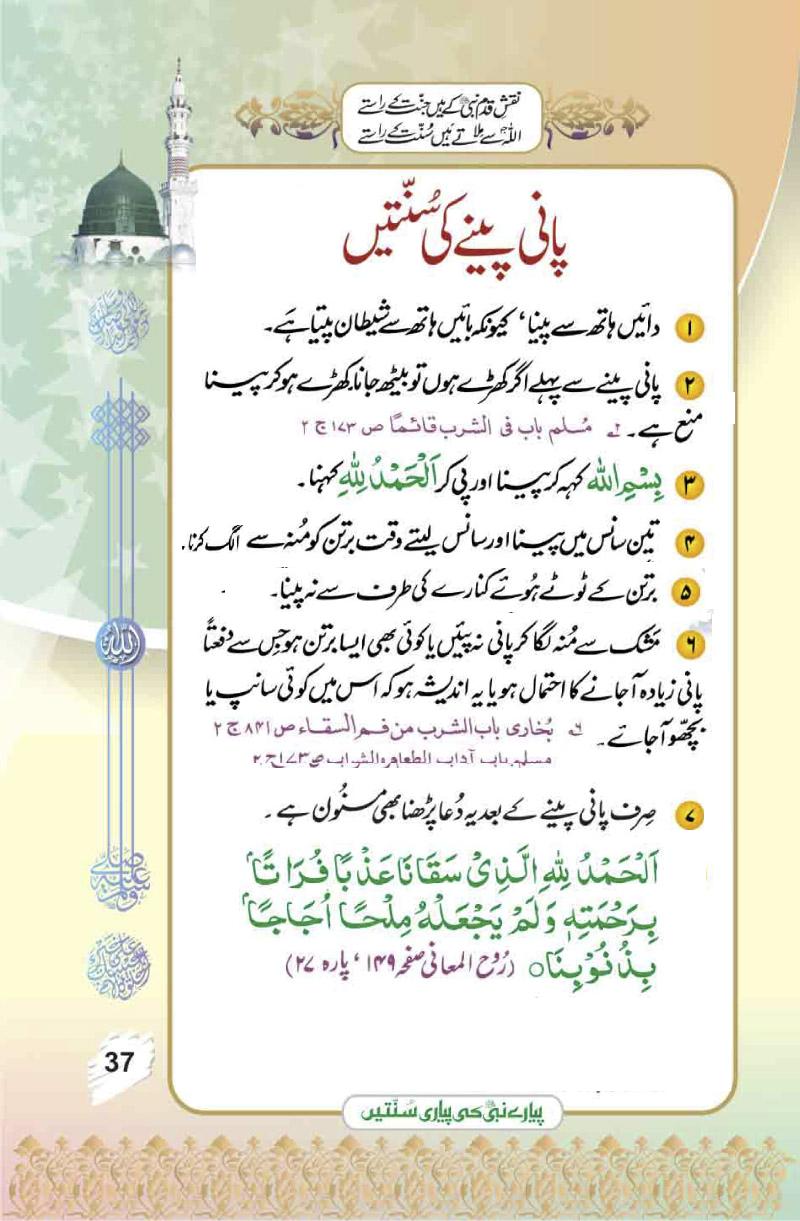 نقش قدم نبیﷺ کے ہیں جنت کے راستے
اللہ سے ملاتے ہیں سُنّت کے راستے
پانی پینے کی سُنّتیں
۱ دائیں ہاتھ سے پینا، کیونکہ بائیں ہاتھ سے شیطان پیتا ہَے۔
۲ پانی پینے سے پہلے اگر کھڑے ہوں تو بیٹھ جانا، کھڑے ہو کر پینا
منع ہے۔ لے مُسلم باب فی الشرب قائمًا ص ۱۷۳ ج ۲
۳ بِسْمِ اللہ کہہ کر پینا اور پی کر اَلْحَمْدُ لِلّٰہِ کہنا۔
۴ تین سانس میں پینا اور سانس لیتے وقت برتن کو مُنہ سے الگ کرنا۔
۵ برتن کے ٹوٹے ہُوئے کنارے کی طرف سے نہ پینا۔
۶ مَشک سے مُنہ لگا کر پانی نہ پئیں یا کوئی بھی ایسا برتن ہو جِس سے دفعتًا
پانی زیادہ آجانے کا احتمال ہو یا یہ اندیشہ ہو کہ اس میں کوئی سانپ یا
بچھّو آجائے۔ بُخاری باب الشرب من فم السقاء ص ۸۴۱ ج ۲
مسلم باب آداب الطعام والشراب ص ۱۷۳ ج ۲
۷ صِرف پانی پینے کے بعد یہ دُعا پڑھنا بھی مسنُون ہے۔
اَلْحَمْدُ لِلّٰہِ الَّذِیْ سَقَانَا عَذْبًا فُرَاتًا
بِرَحْمَتِہٖ وَلَمْ یَجْعَلْہُ مِلْحًا اُجَاجًا
بِذُنُوْبِنَا○ (رُوح المعانی صفحہ ۱۴۹، پارہ ۲۷)
اللہ
37
پیارے نبیﷺ کی پیاری سُنّتیں